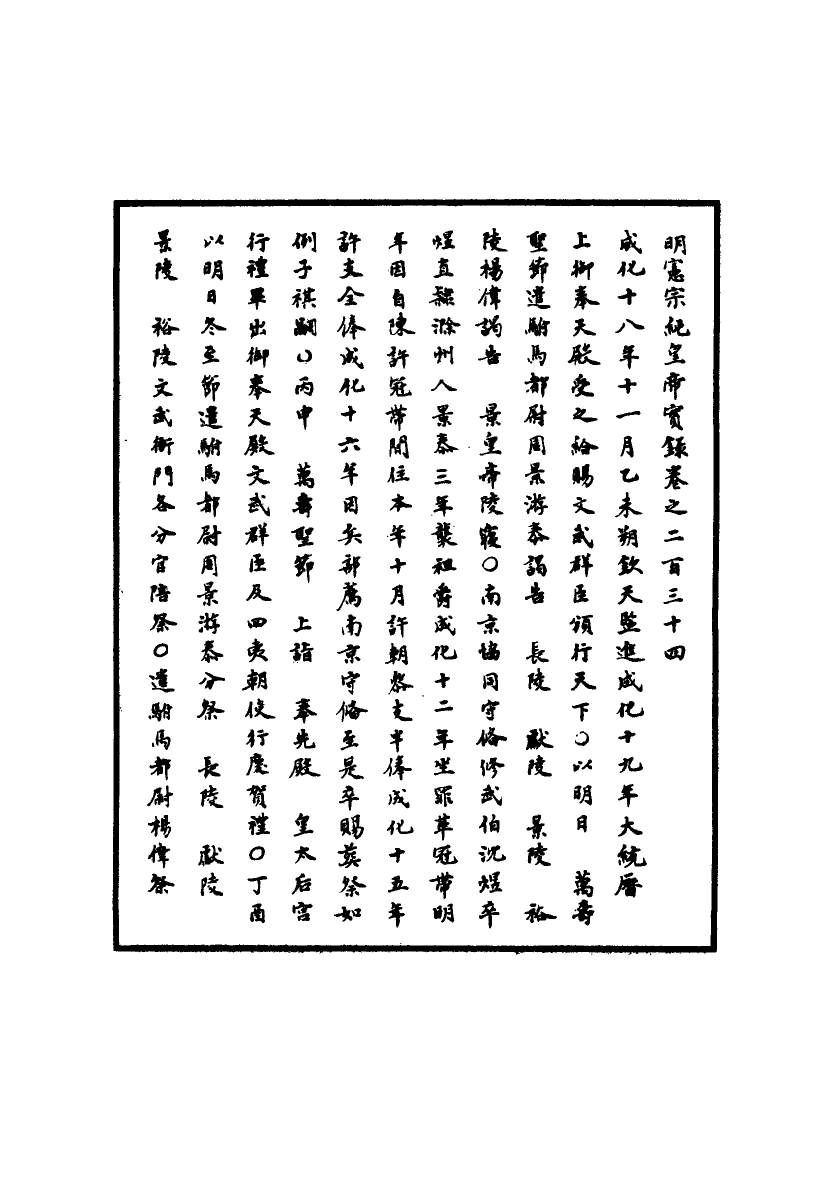 明憲宗純皇帝實錄卷之二百三十四
成化十八年十一月乙未朔欽天監進成化十九年大統曆
上御奉天殿受之給賜文武群臣頒行天下○以明日　萬壽
聖節遣駙馬都尉周景游泰謁告　長陵　獻陵　景陵　裕
陵楊偉謁告　景皇帝陵寢○南京協同守備修武伯沈煜卒
煜直隸滁州人景泰三年襲祖爵成化十二年坐罪革冠帶明
年因自陳許冠帶閒住本年十月許朝參支半俸成化十五年
許支全俸成化十六年因兵部薦南京守備至是卒賜葬祭如
例子祺嗣○丙申　萬壽聖節　上詣　奉先殿　皇太后宮
行禮畢出御奉天殿文武群臣及四夷朝使行慶賀禮○丁酉
以明日冬至節遣駙馬都尉周景游泰分祭　長陵　獻陵
景陵　裕陵文武衙門各分官陪祭○遣駙馬都尉楊偉祭